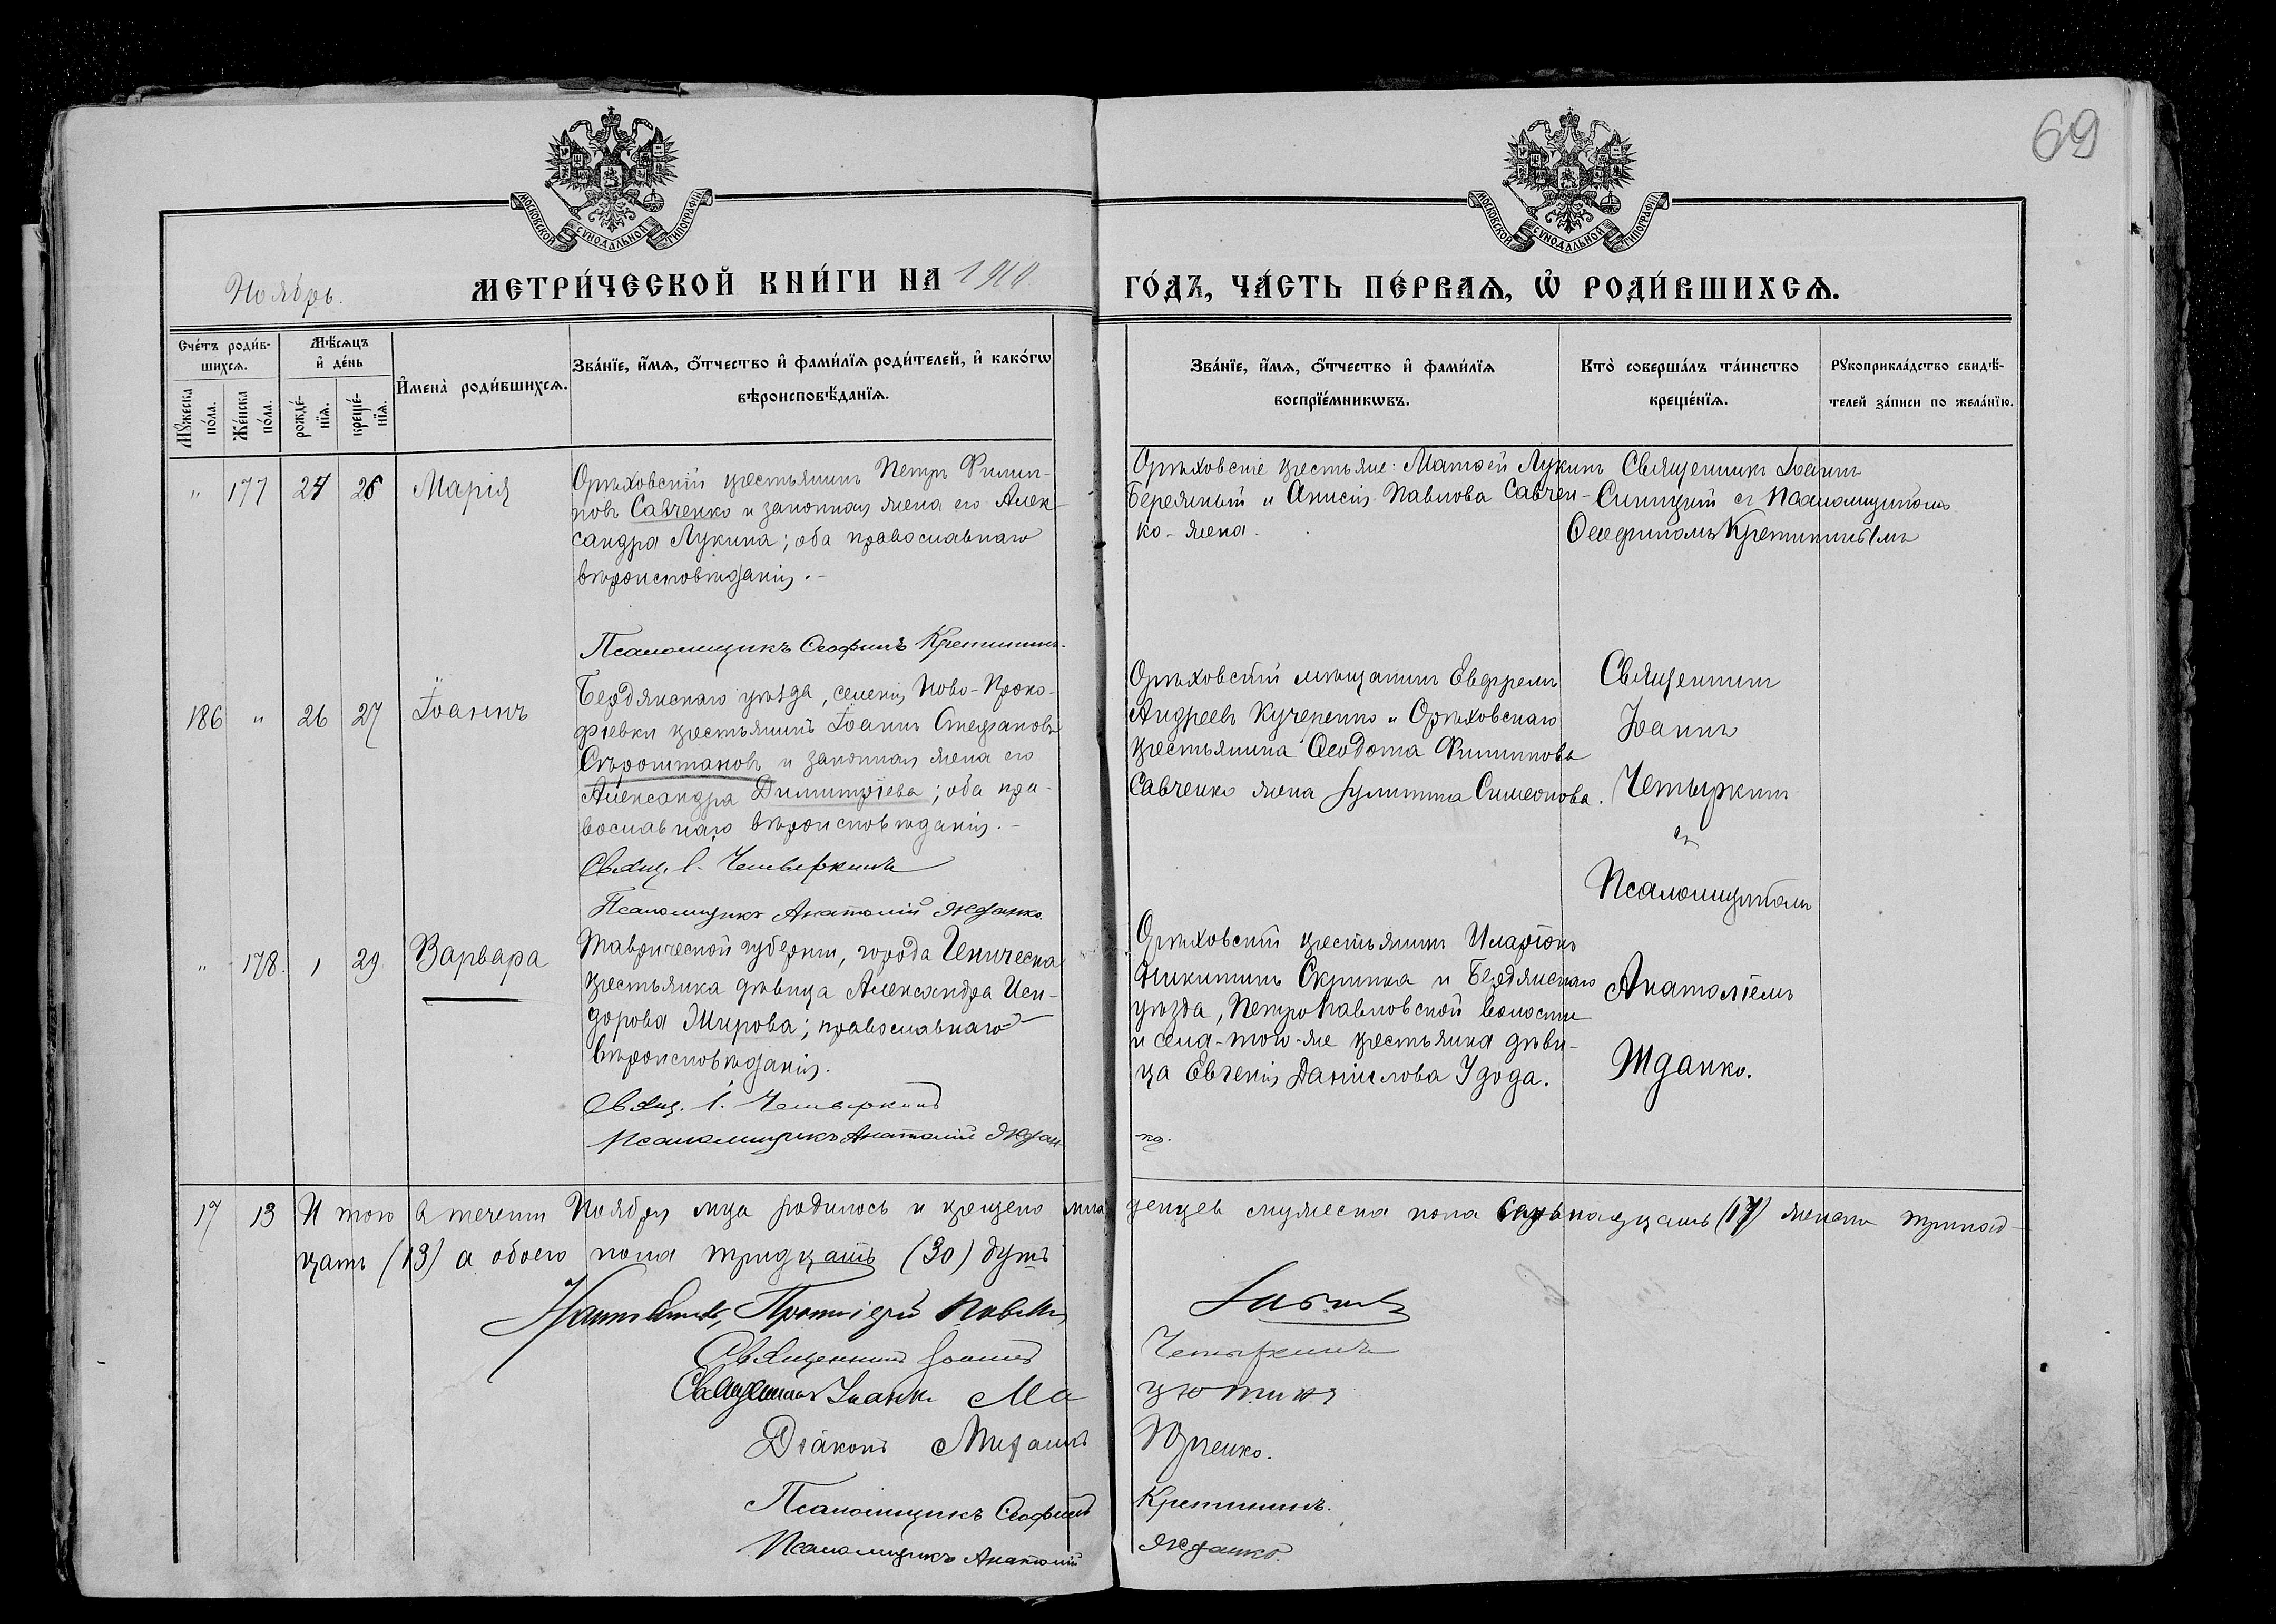 69
МОСКОВСКОЙ СѴНОДАЛЬНОЙ ТИПОГРАФІИ
МОСКОВСКОЙ СѴНОДАЛЬНОЙ ТИПОГРАФІИ
Ноябрь.
МЕТРИ́ЧЕСКОЙ КНИ́ГИ НА 1910 ГО́ДЪ, ЧА́СТЬ ПЕ́РВАѦ, Ѡ҆ РОДИ́ВШИХСѦ.
Сче́тъ роди́в-
шихсѧ.
Мꙋ́жеска по́ла.
Же́нска по́ла.
Мѣ́сѧцъ
и҆ де́нь
рожде́-
нїѧ.
креще́-
нїѧ.
И҆мена̀ роди́вшихсѧ.
Зва́нїе, и҆́мѧ, ѻ҆́тчество и҆ фами́лїѧ роди́телей, и҆ како́гѡ
вѣроисповѣ́данїѧ.
Зва́нїе, и҆́мѧ, ѻ҆́тчество и҆ фами́лїѧ
воспрїе́мникѡвъ.
Кто̀ соверша́лъ та́инство
креще́нїѧ.
Рꙋкоприкла́дство свидѣ́-
телей за́писи по жела́нїю.
" 177 24 26 Марія
Орѣховскій крестьянинъ Петръ Филип-
повъ Савченко и законная жена его Алек-
сандра Лукина; оба православнаго
вѣроисповѣданія.-
Псаломщикъ Ѳеофилъ Кретининъ.
Орѣховскіе крестьяне: Матѳей Лукинъ
Бережный и Анисія Павлова Савчен-
ко-жена.
Священникъ Іоаннъ
Синицкій съ Псаломщикомъ
Ѳеофиломъ Кретининымъ
186 " 26 27 Іоаннъ
Бердянскаго уѣзда, селенія Ново-Проко-
фіевки крестьянинъ Іоаннъ Стефановъ
Сѣроштановъ и законная жена его
Александра Димитріева; оба пра-
вославнаго вѣроисповѣданія.-
Свящ. І. Четыркинъ
Псаломщикъ Анатолій Жданко.
Орѣховскій мѣщанинъ Евфремъ
Андреевъ Кучеренко и Орѣховскаго
крестьянина Ѳеодота Филиппова
Савченко жена Іулитта Симеонова.
Священникъ
Іоаннъ
Четыркинъ
съ
Псаломщикомъ
Анатоліемъ
Жданко.
" 178. 1 29 Варвара
Таврической губерніи, города Геническа
крестьянка дѣвица Александра Иси-
дорова Жирова; православнаго
вѣроисповѣданія.
Свящ. І. Четыркинъ
Псаломщикъ Анатолій Ждан-
ко.
Орѣховскій крестьянинъ Иларіонъ
Никитинъ Скрипка и Бердянскаго
уѣзда, Петропавловской волости
и села-того-же крестьянка дѣви-
ца Евгенія Даніилова Удода.
17 13 Итого в теченіи Ноября мца родилось и крещено младенцев мужеска пола семьнадцать (17) женска тринад-
цать (13) а обоего пола тридцать (30) душъ
Протоіерей Павелъ
Священникъ Іоаннъ Четыркинъ
Священникъ Іоаннъ Мацютинъ
Діаконъ Михаилъ Юрченко.
Псаломщикъ Ѳеофилъ Кретининъ.
Псаломщикъ Анатолій Жданко.